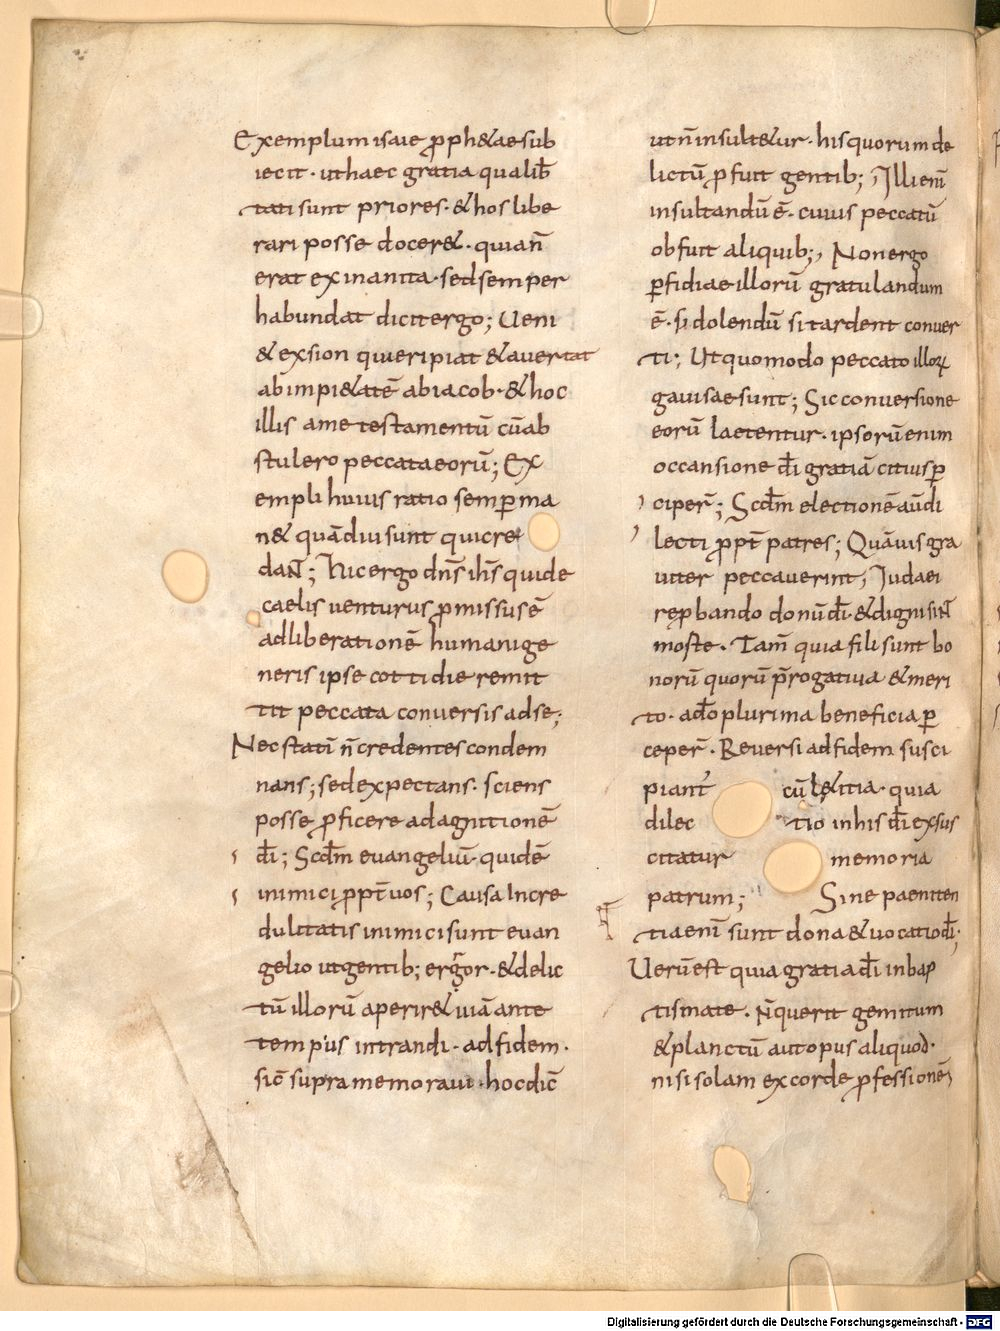 Exemplum isaie ꝓph&ae sub
iecit · ut haec gratia qua lib̄
tati sunt priores · & hos libe
rari posse docer& · quia n̄
erat exinanita · sed semper
habundat dicit ergo; Ueni
& ex sion qui eripiat & auertat
ab impi&atē ab iacob · & hoc
illis a me testamentū cū ab
stulero peccata eorū; Ex
empli huius ratio semꝑ ma
n& quādiu sunt qui cre
dan̄; hic ergo dn̄s ih̄s qui de
caelis uenturus ꝓmissus ē
ad liberationē humani ge
neris ipse cottidie remit
tit peccata conuersis ad se;
Nec statī n̄ credentes condem
nans; sed expectans · sciens
posse ꝓficere ad agnitionē
d̄i; Scd̄m euangeliū · quidē
inimici ꝓpt̄ uos; Causa Incre
dulitatis inimici sunt euan
gelio ut gentib; ergo · & delic
tū illorū aperir& uiā ante
tempus intrandi · ad fidem ·
sic̄ supra memoraui · hoc dic̄
ut n̄ insult&ur · his quorum de
lictū ꝓfuit gentib; Illi enī
insultandū ē · cuius peccatū
obfuit aliquib; Non ergo
ꝑfidiae illorū gratulandum
ē · s; dolendū si tardent conuer
ti; Ut quomodo peccato illoꝝ
gauisae sunt; Sic conuersione
eorū laetentur · ipsorū enim
occansione d̄i gratiā citius ꝑ
ciper̄; Scd̄m electionē aū di
lecti ꝓpt̄ patres; Quāuis gra
uiter peccauerint; Judaei
rępbando donū d̄i · & digni sin̄t
morte · Tam̄ quia fili sunt bo
norū quorū p̄rogatiua & meri
to · a d̄o plurima beneficia ꝑ
ceper̄ · Reuersi ad fidem susci
piant̄ cū l&itia · quia
dilec tio in his d̄i exsus
citatur memoria
patrum; Sine paeniten
tia enī sunt dona & uocatio d̄i ·
Uerū est quia gratia d̄i in bap
tismate · N̄ querit gemitum
& planctū aut opus aliquod ·
nisi solam ex corde ꝓfessionē
Digitalisierung gefördert durch die Deutsche Forschungsgemeinschaft - DFG